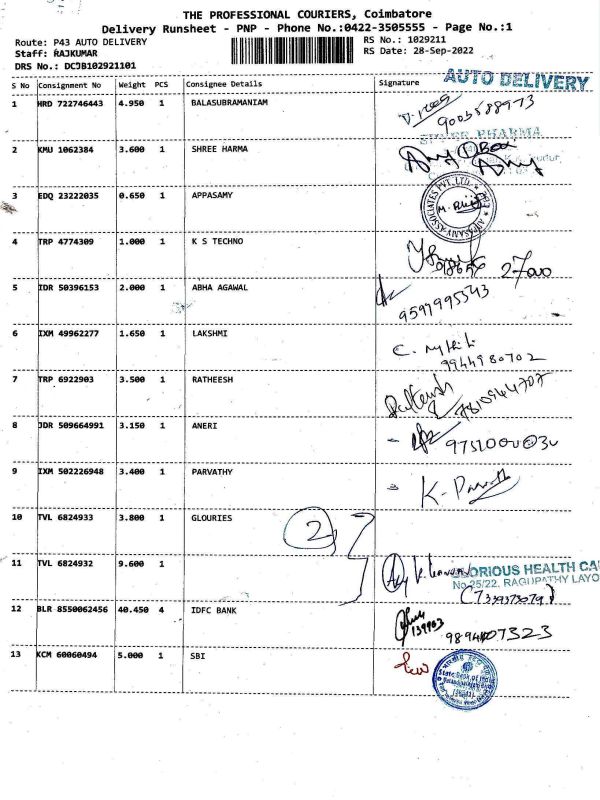 THE PROFESSIONAL COURIERS, Coimbatore
Delivery Runsheet - PNP - Phone No.:0422-3505555 - Page No.:1
Route: P43 AUTO DELIVERY
RS No.: 1029211
Staff: RAJKUMAR
RS Date: 28-Sep-2022
DRS No.: DCJB102921101
AUTO DELIVERY
S No Consignment No Weight PCS Consignee Details Signature
1 HRD 722746443 4.950 1 BALASUBRAMANIAM
9003588973
PHARMA
2 KMU 1062384 3.600 1 SHREE HARMA
3 EDQ 23222035 0.650 1 APPASAMY
ASSOCIATES PVT. LTD.
4 TRP 4774309 1.000 1 K S TECHNO
5 IDR 50396153 2.000 1 ABHA AGAWAL
9597995343
6 IXM 49962277 1.650 1 LAKSHMI
9944980702
7 TRP 6922903 3.500 1 RATHEESH
8 JDR 509664991 3.150 1 ANERI
9 IXM 502226948 3.400 1 PARVATHY
10 TVL 6824933 3.800 1 GLOURIES
2
11 TVL 6824932 9.600 1
GLORIOUS HEALTH CA
No.25/22, RAGUPATHY LAYO
12 BLR 8550062456 40.450 4 IDFC BANK
13 KCM 60060494 5.000 1 SBI
State Bank of India